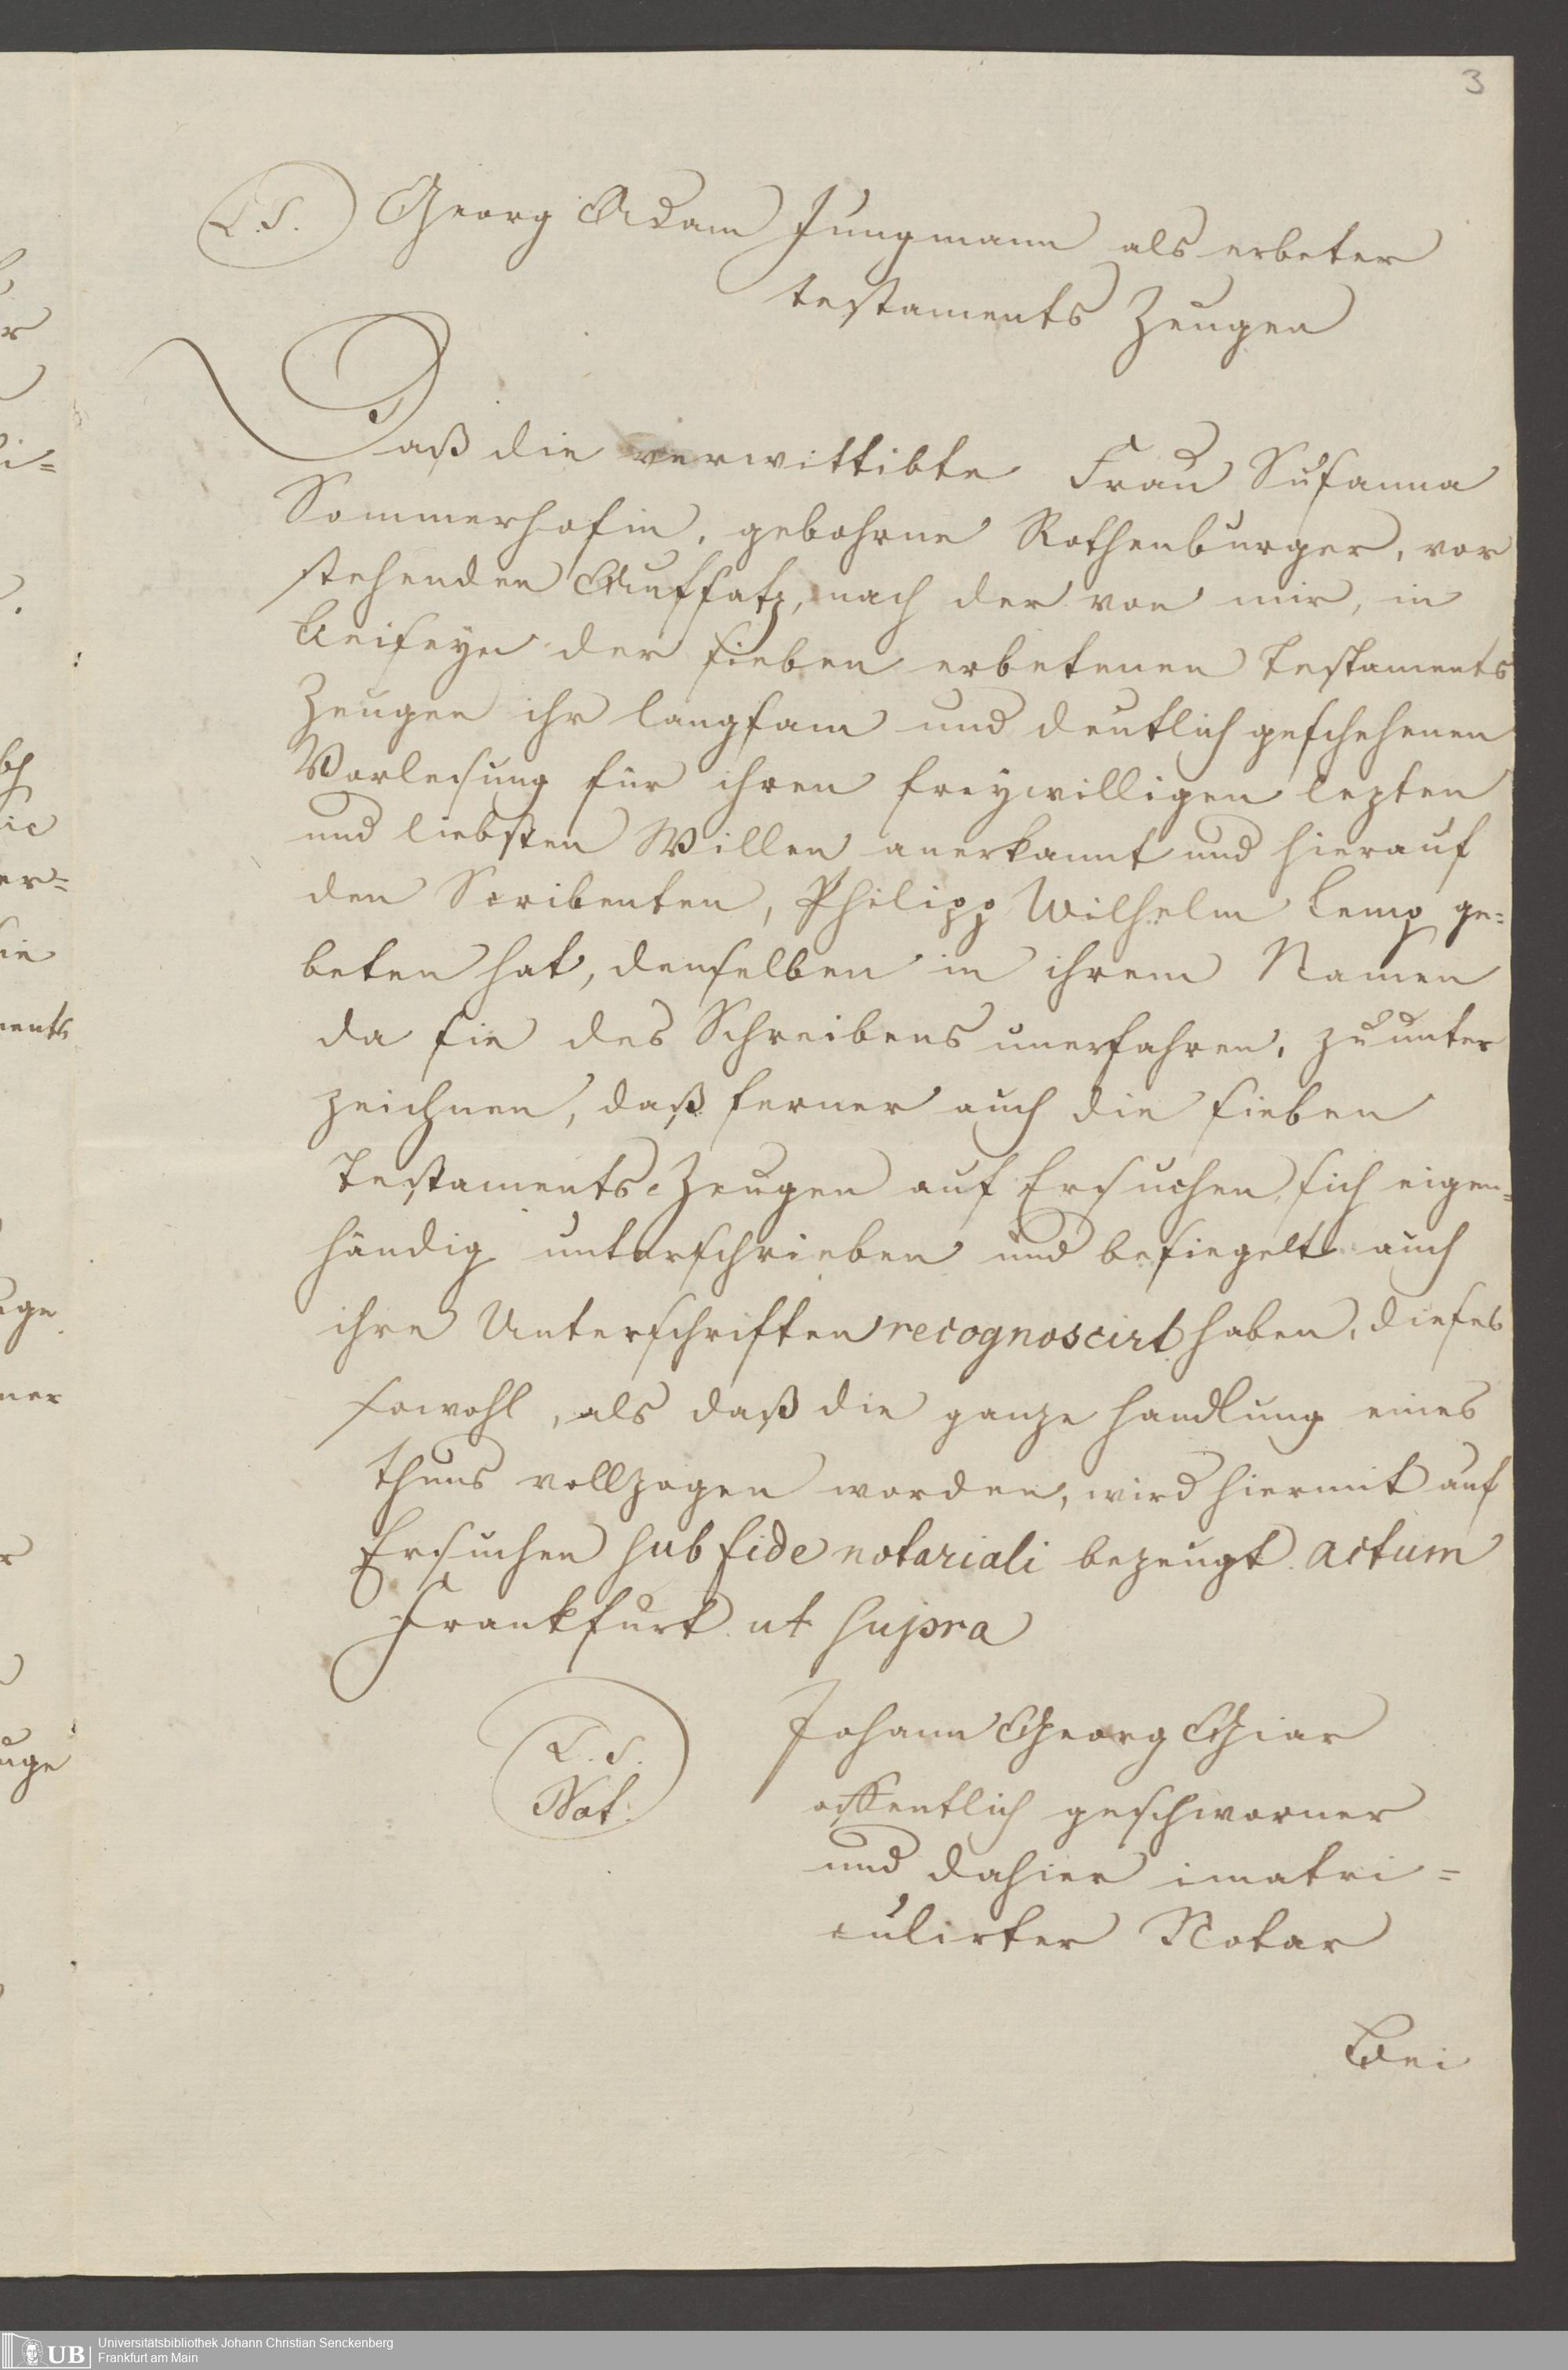 3
L.S. Georg Adam Jungmann als erbeter
testaments Zeugen
Daß die verwittibte Frau Susanna
Sommerhofin, gebohrne Rothenburger, vor
stehenden Auffsatz, nach der von mir, in
Beiseyn der sieben erbetenen Testaments
Zeugen ihr langsam und deutlich geschehenen
Vorlesung für ihren freywilligen lezten
und liebsten Willen anerkannt und hierauf
den Scribenten, Philipp Wilhelm Lemp ge=
beten hat, denselben in ihrem Namen
da sie des Schreibens unerfahren, zu unter
zeichnen, daß ferner auch die sieben
Testaments Zeugen auf Ersuchen sich eigen=
händig unterschrieben und besiegelt auch
ihre Unterschriften recognoscirt haben, dieses
sowohl, als daß die ganze Handlung eines
thuns vollzogen worden, wird hiermit auf
Ersuchen sub fide notariali bezeugt. actum
Frankfurt ut supra
L.S. Johann Georg Giar
Not: offentlich geschworner
und dahier imatri=
culirter Notar
Bei
UB Universitätsbibliothek Johann Christian Senckenberg
Frankfurt am Main